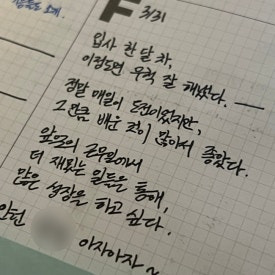 F 3/31
입사 한 달 차,
이정도면 무척 잘 해냈다.
정말 매일이 도전이었지만,
그만큼 배운 것이 많아서 좋았다.
앞으로 근무하면서
더 재밌는 일들을 통해,
많은 성장을 하고 싶다.
아자아자~